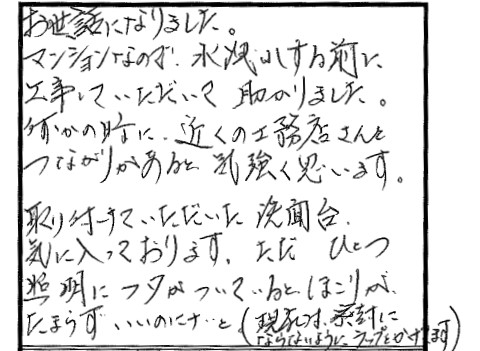 お世話になりました。
マンションなので、水洩れする前に
工事していただいて 助かりました。
何かの時に、近くの工務店さんと
つながりがあると 気強く思います。
取り付けていただいた 洗面台、
気に入っております。ただ ひとつ
照明にフタがついているとほこりが、
たまらず いいのにナ…と(現在は、密封に
ならないようにラップをかけてます)